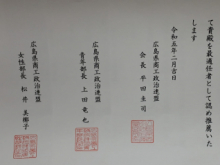 て貴殿を最適任者として認め推薦いた
します
令和五年二月吉日
広島県商工政治連盟
会長 平田圭司
広島県商工政治連盟
青年部長 上田竜也
広島県商工政治連盟
女性部長 松井美榔子